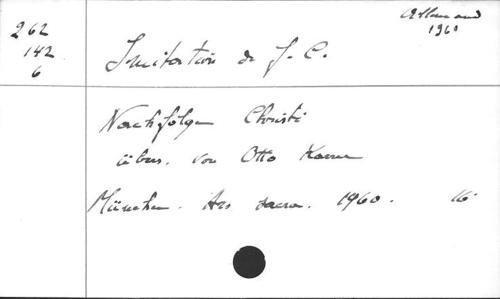 262
142
6
Allemand
1960
Imitation de J.-C.
Nachfolge Christi
übers. von Otto Karrer
München. Ars sacra. 1960. 16°